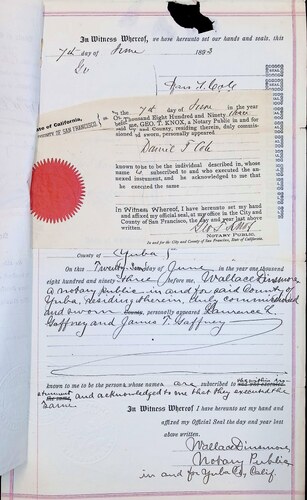 In Witness Whereof, we have hereunto set our hands and seals, this
7th day of June 1893
Dan T. Cole
State of California,
COUNTY OF SAN FRANCISCO
On the 7th day of June in the year
One Thousand Eight Hundred and Ninety three
before me, GEO. T. KNOX, a Notary Public in and for
said City and County, residing therein, duly commissioned
and sworn, personally appeared
Daniel T. Cole
known to me to be the individual described, in whose
name is subscribed to and who executed the
annexed instrument, and he acknowledged to me that
he executed the same
In Witness Whereof, I have hereunto set my hand
and affixed my official seal, at my office in the City
and County of San Francisco, the day and year last above
written.
Geo. T. Knox
NOTARY PUBLIC
In and for the City and County of San Francisco, State of California.
County of Yuba
On this Twenty day of June in the year one thousand
eight hundred and ninety three before me, Wallace Dinsmore
a notary public in and for said County of
Yuba, residing therein, duly commissioned
and sworn personally appeared Lawrence L.
Gaffney and James T. Gaffney
known to me to be the persons whose names are subscribed to
and acknowledged to me that they executed the
same.
In Witness Whereof I have hereunto set my hand and
affixed my Official Seal the day and year last
above written.
Wallace Dinsmore
Notary Public
in and for Yuba Co, Calif.